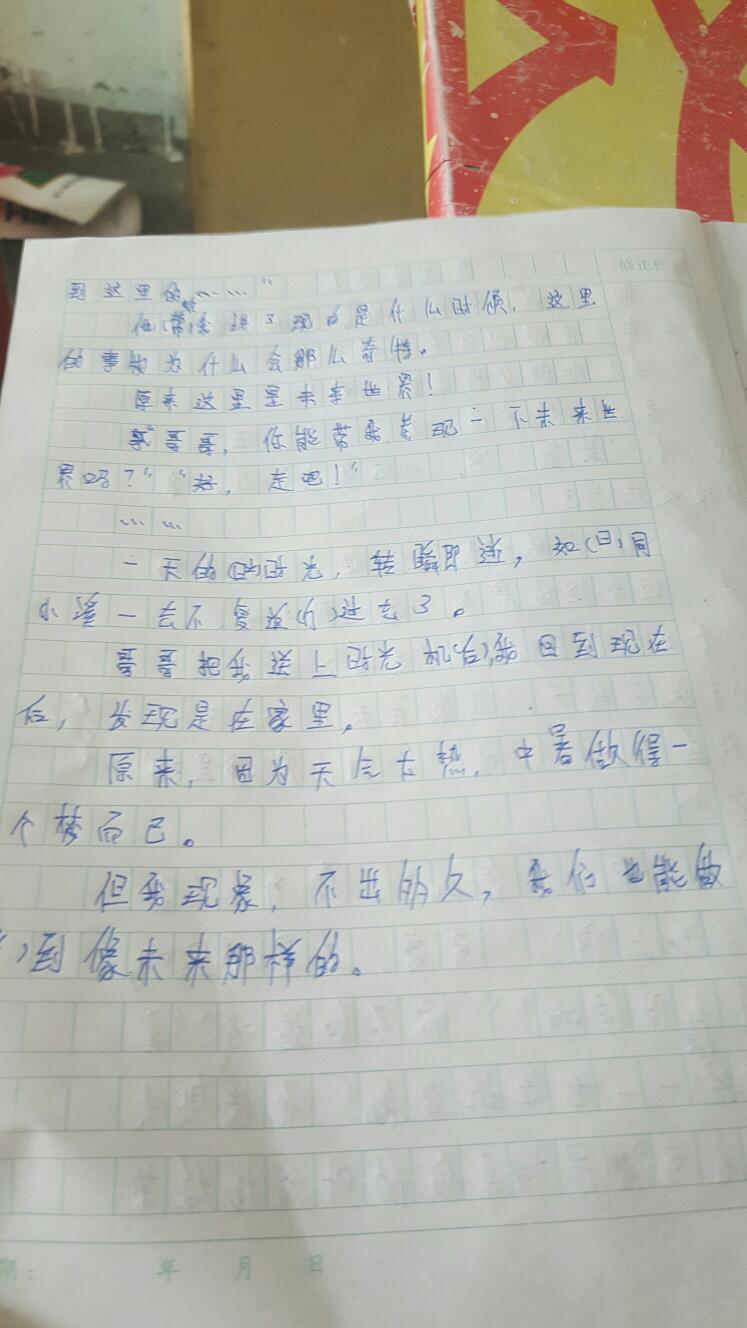 修正栏
到这里的……"
他 给我讲了现在是什么时候，这里
的事物为什么会那么奇特。
原来这里是未来世界！
"哥哥，你能带我去 现一下未来世
界吗？""好，走吧！"
……
一天的时光，转瞬即逝，如 同
小溪一去不复返 过去了。
哥哥把我送上时光机 我回到现在
后，发现是在家里。
原来，因为天气太热，中暑做得一
个梦而已。
但我现象，不出 久，我们也能做
到像未来那样的。
期： 年 月 日